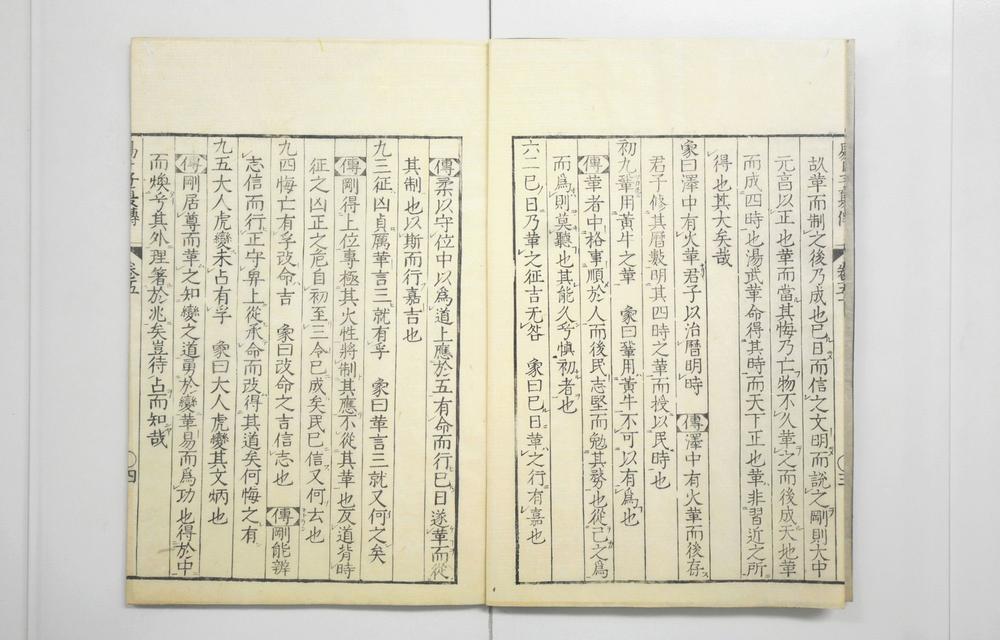 故革而制之後乃成也巳日而信之文明而説之剛則大中
元亨以正也革而當其悔乃亡物不久革之而後成天地革
而成四時也湯武革命得其時而天下正也革非習近之所
得也其大矣哉
象曰澤中有火革君子以治曆明時 傳澤中有火革而後存
君子修其曆數明其四時之革而授以民時也
初九鞏用黄牛之革 象曰鞏用黄牛不可以有爲也
傳革者中格事順於人而後民志堅而勉其勢也從己之爲
而爲則莫聽也其能久乎慎初者也
六二巳日乃革之征吉无咎 象曰巳日革之行有嘉也
傳柔以守位中以爲道上應於五有命而行巳日遂革而從
其制也以斯而行嘉吉也
九三征凶貞厲革言三就有孚 象曰革言三就又何之矣
傳剛得上位專極其火性將制其應不從其革也反道背時
征之凶正之危自初至三令已成矣民巳信又何去也
九四悔亡有孚改命吉 象曰改命之吉信志也 傳剛能辨
志信而行正守畀上從承命而改得其道矣何悔之有
九五大人虎變未占有孚 象曰大人虎變其文炳也
傳剛居尊而革之知變之道勇於變革易而爲功也得於中
而煥乎其外理著於兆矣豈待占而知哉
卷五
四